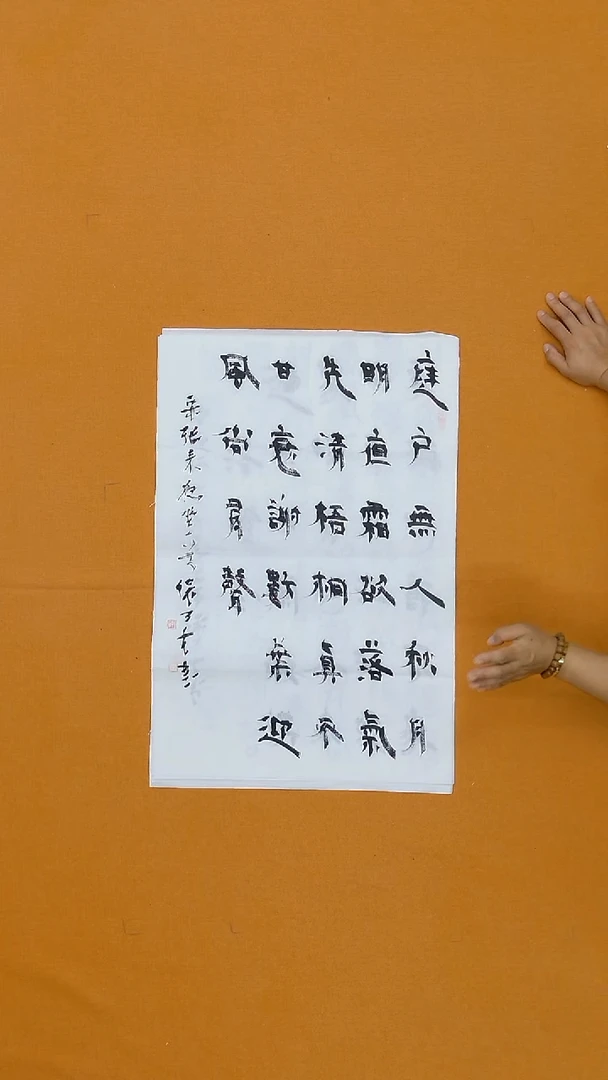 庭戶無人秋月
明夜霜欲落氣
先清梧桐真不
甘衰謝數葉迎
風尚有聲
張耒夜坐一